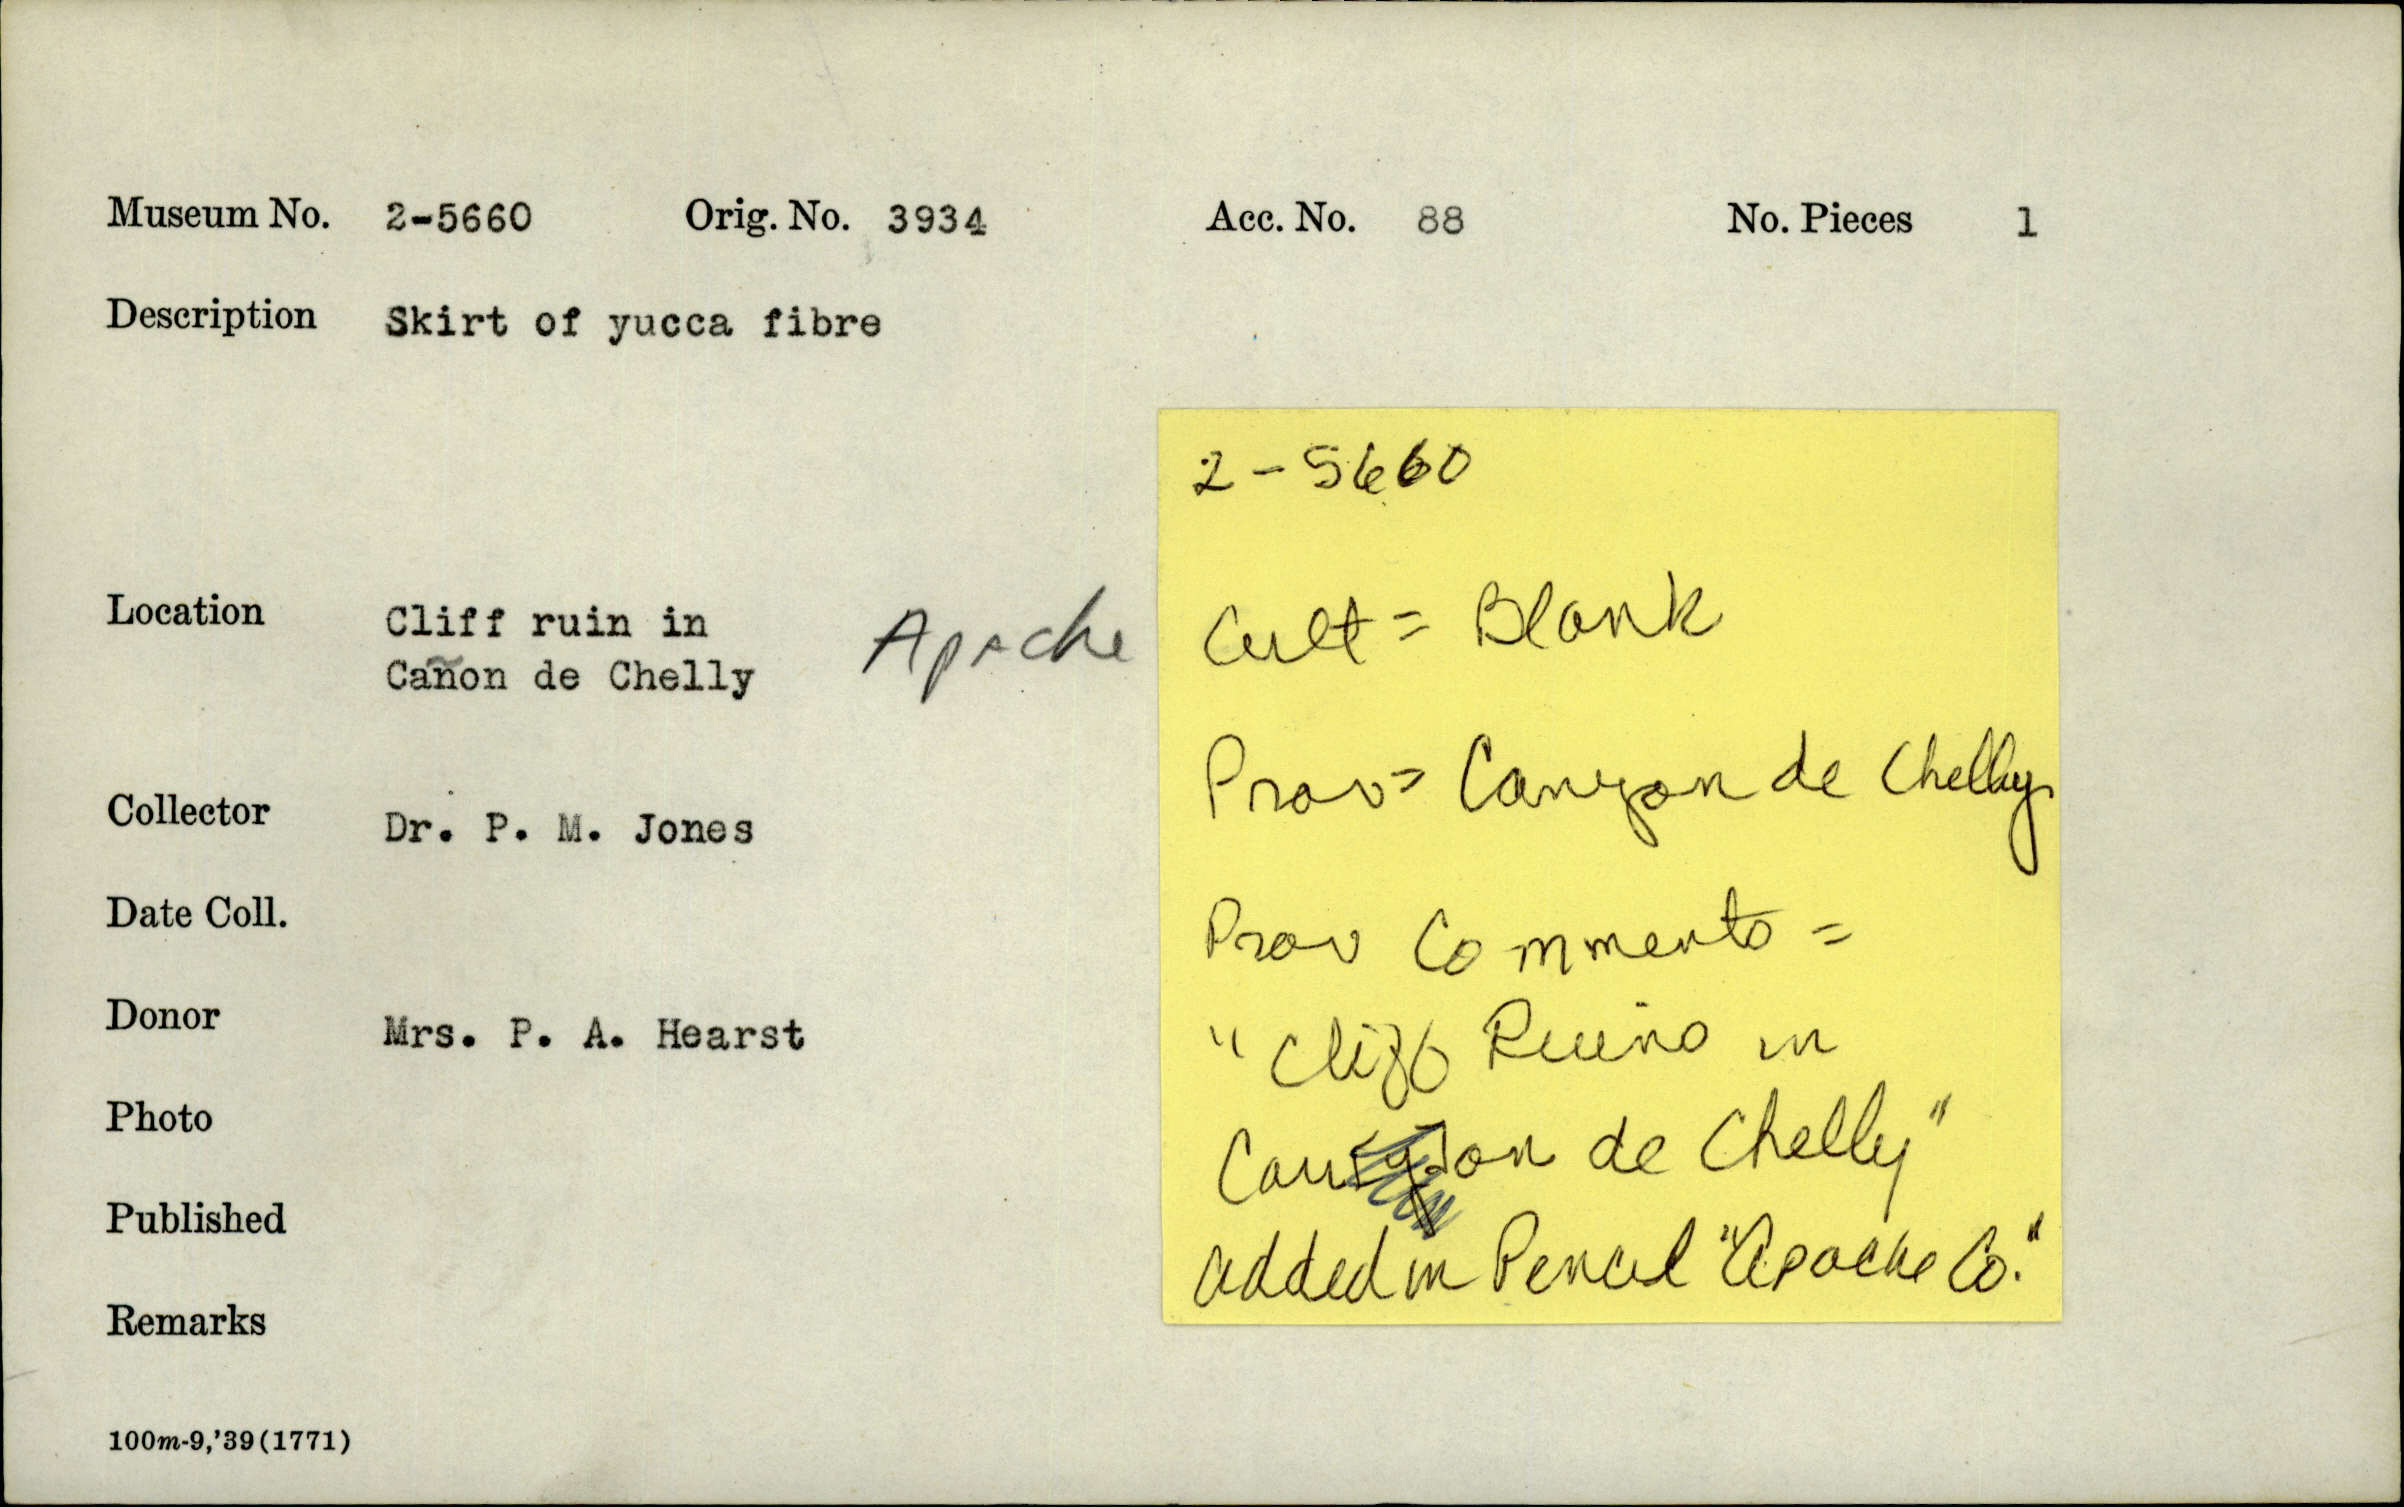 Museum No. 2-5660 Orig. No. 3934 Acc. No. 88 No. Pieces 1
Description Skirt of yucca fibre
Location Cliff ruin in
Cañon de Chelly
Apache
Collector Dr. P. M. Jones
Date Coll.
Donor Mrs. P. A. Hearst
Photo
Published
Remarks
100m-9,'39(1771)
2-5660
Cult = Blank
Prov = Canyon de Chelly
Prov Comments =
"Cliff Ruins in
Canyon de Chelly"
added in Pencil "Apache Co."